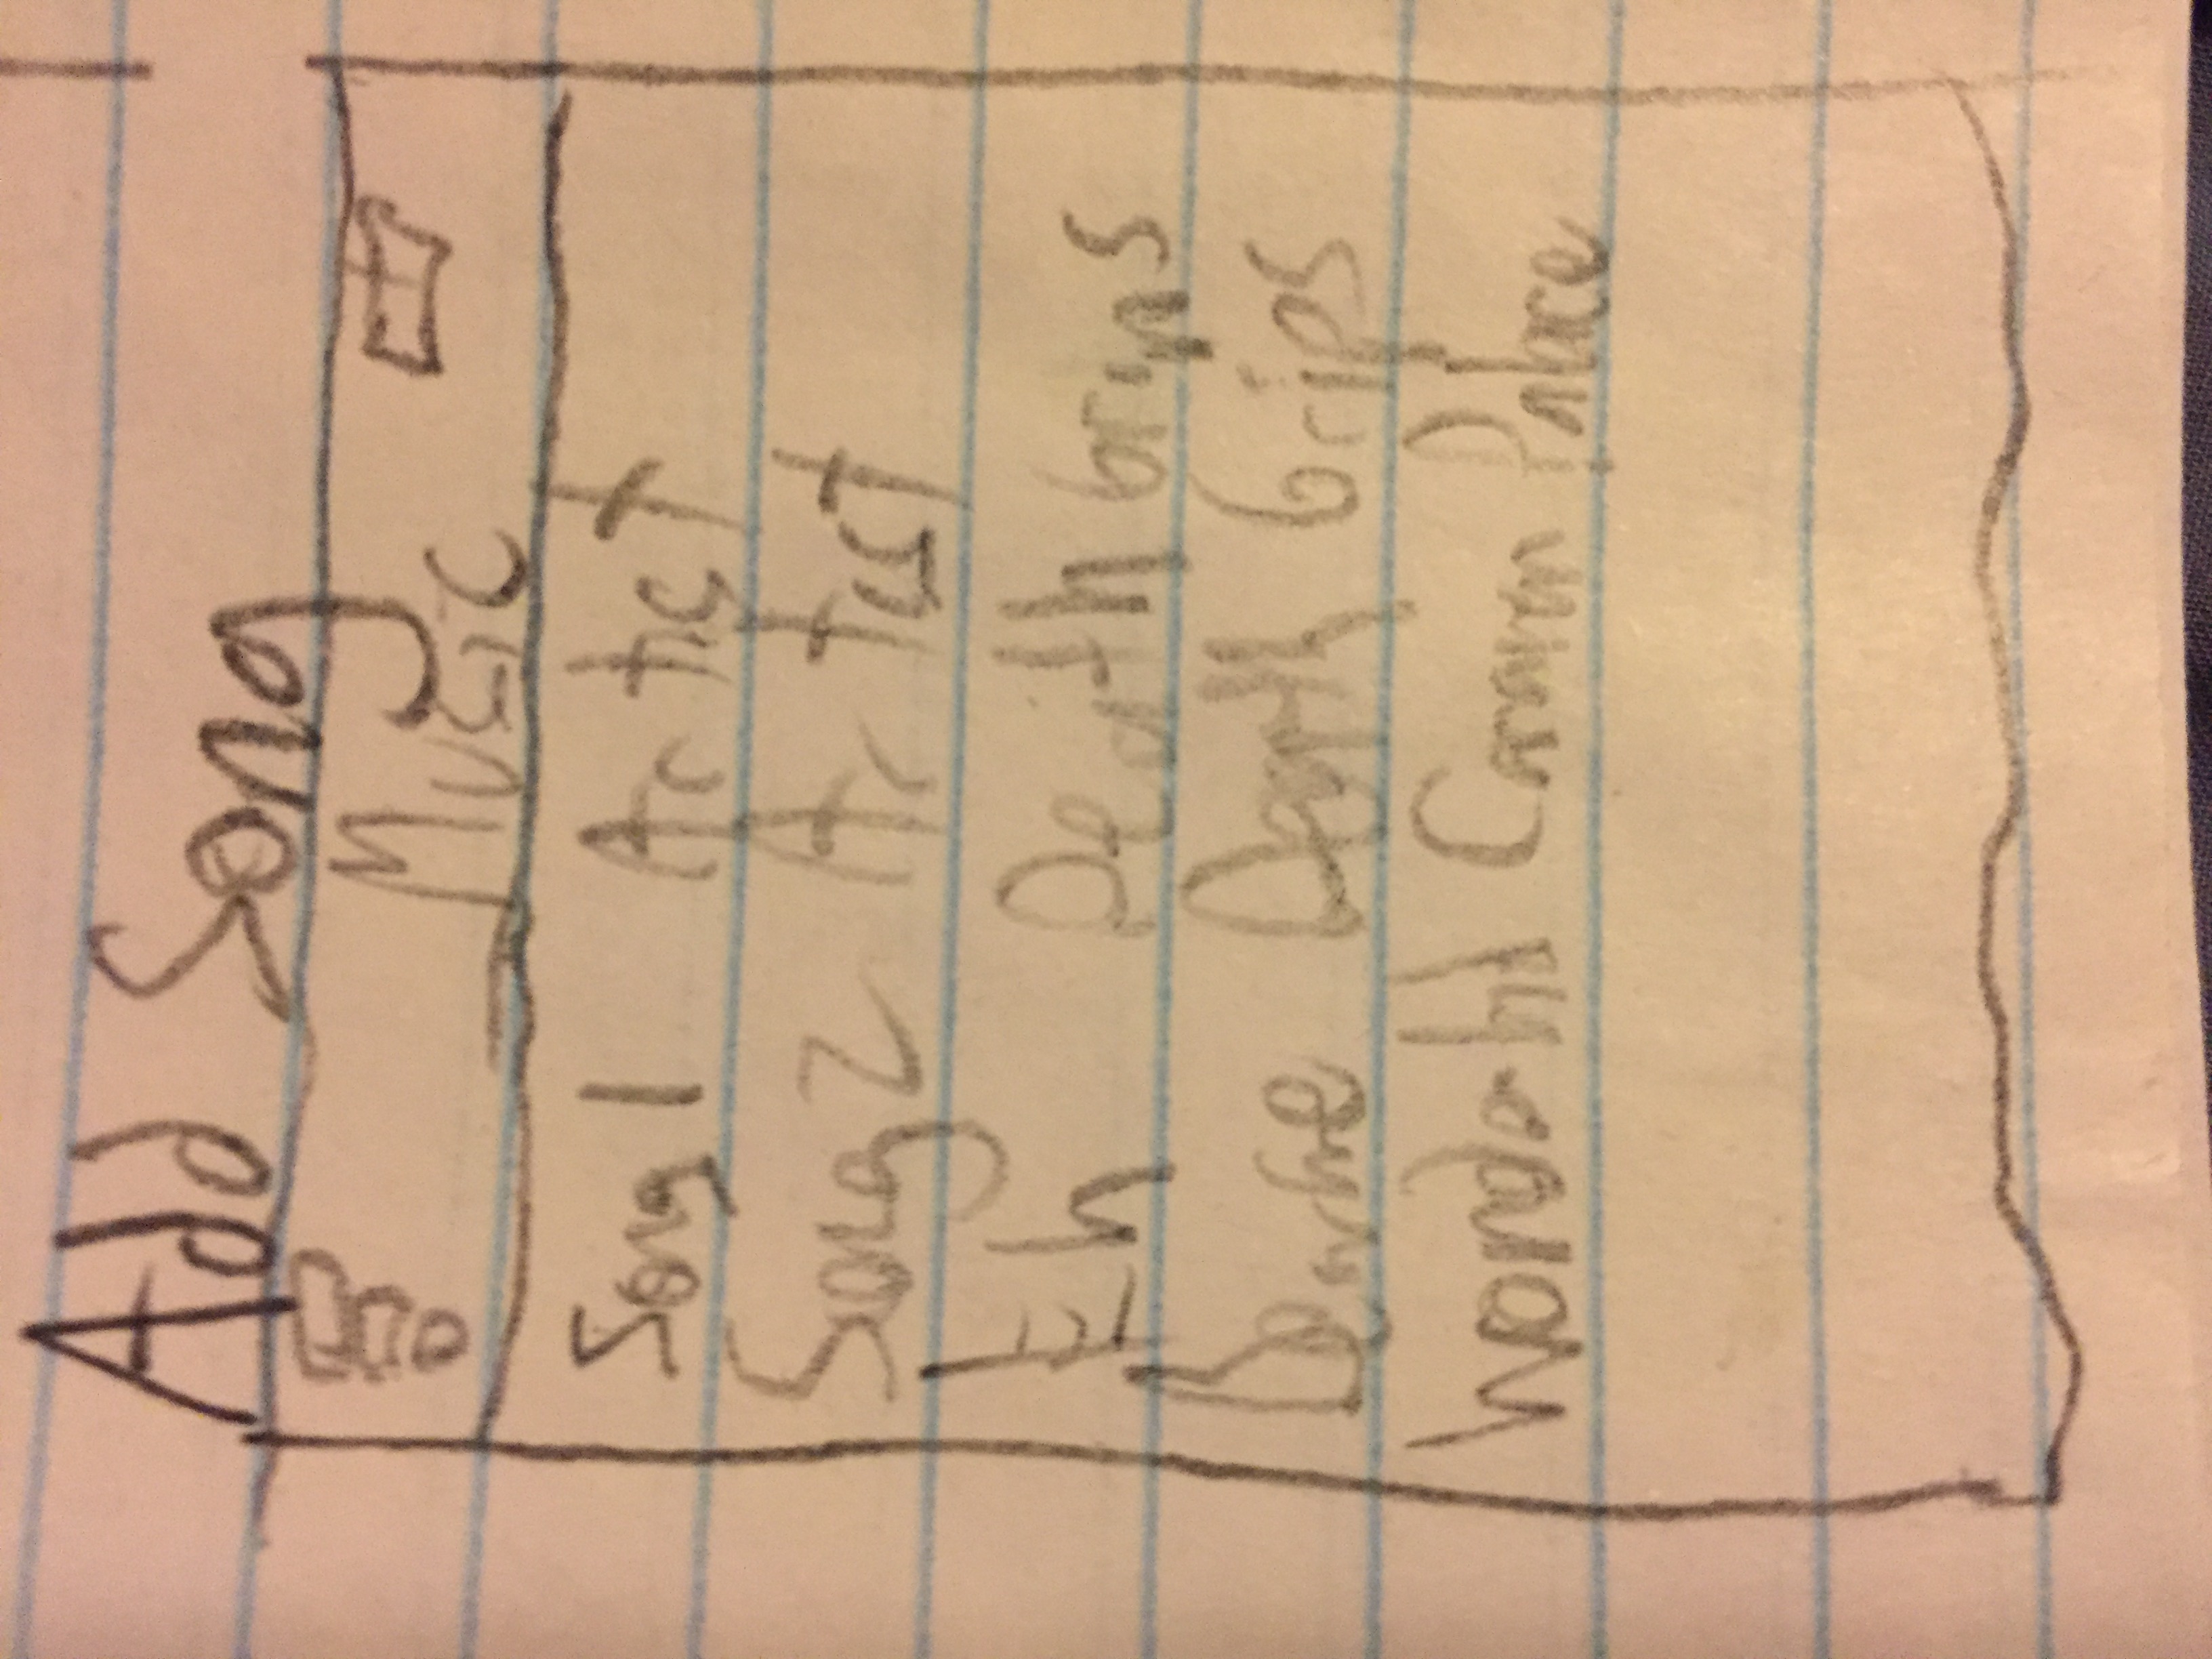 Add Song
Music
Song 1 Artist
Song 2 Artist
Eh Death Grips
Death Grips
Caravan Palace